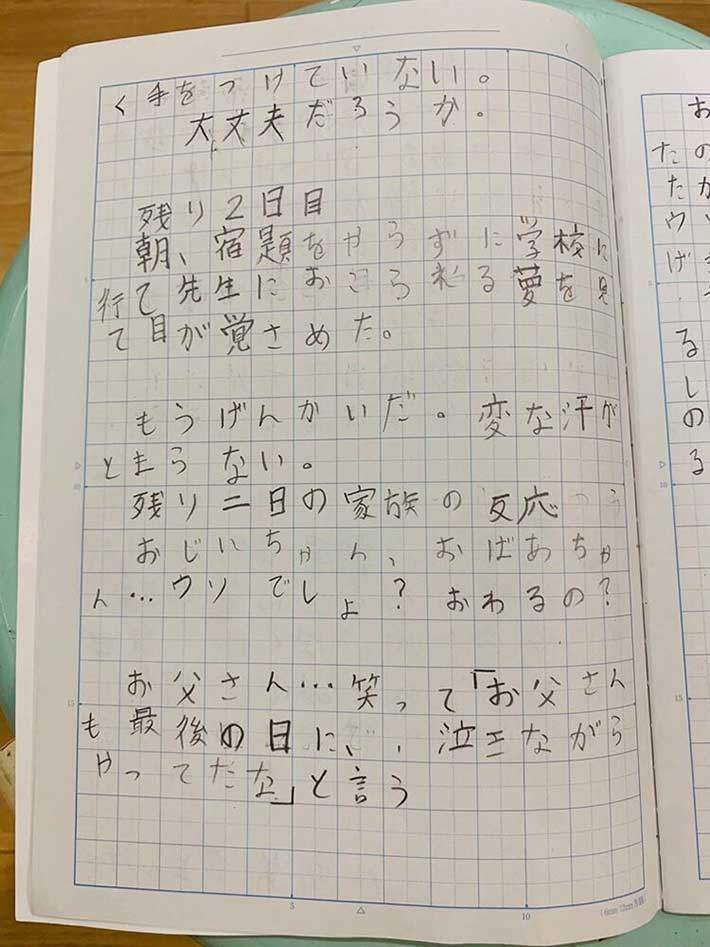 く手をつけていない。
大丈夫だろうか。
残り2日目
朝、宿題をやらずに学校に
行て先生におこられる夢を見
て目が覚さめた。
もうげんかいだ。変な汗が
とまらない。
残り二日の家族の反応
おじいちゃん、おばあちゃ
ん…ウソでしょ?おわるの?
お父さん…笑って「お父さん
も最後の日に、泣きながら
やってたな」と言う